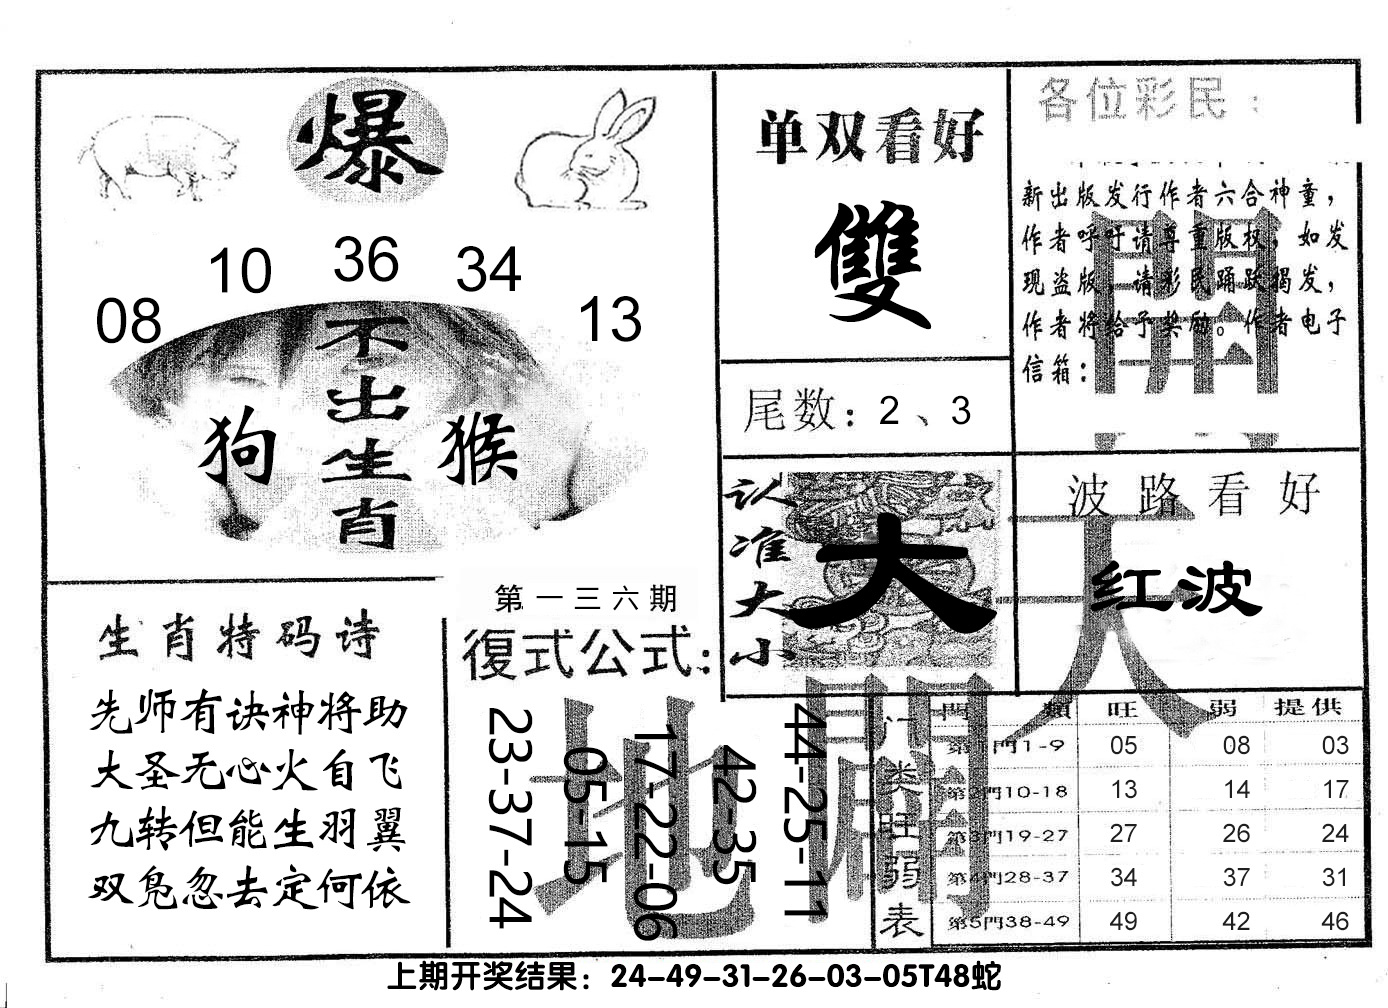 爆
10 36 34
08 13
不出生肖
狗 猴
单双看好
雙
尾数：2、3
认准大小
大
各位彩民：
新出版发行作者六合神童，
作者呼吁请尊重版权，如发
现盗版，请彩民踊跃揭发，
作者将给予奖励。作者电子
信箱：
開
波路看好
天
红波
生肖特码诗
先师有诀神将助
大圣无心火自飞
九转但能生羽翼
双凫忽去定何依
第一三六期
復式公式：
地
開
23-37-24
05-15
17-22-06
42-35
44-25-11
门类旺弱表
門類 旺 弱 提供
第1門1-9 05 08 03
第2門10-18 13 14 17
第3門19-27 27 26 24
第4門28-37 34 37 31
第5門38-49 49 42 46
上期开奖结果：24-49-31-26-03-05T48蛇